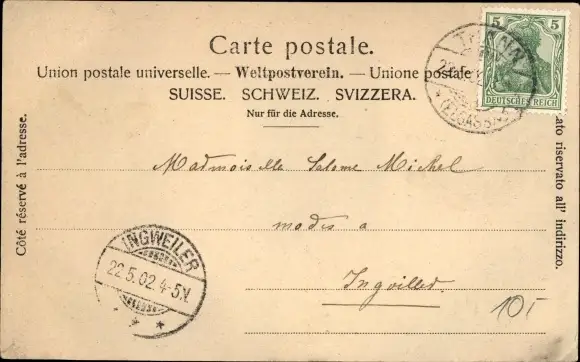 Carte postale.
Union postale universelle. — Weltpostverein. — Unione postale
SUISSE. SCHWEIZ. SVIZZERA.
Nur für die Adresse.
5 5
DEUTSCHES REICH
22.5.02
(ELSASS)
Côté réservé à l'adresse.
lato riservato all' indirizzo.
Madmoiselle Salome Michel
modes a
Ingwiller
INGWEILER
22.5.02.4-5N.
10,-